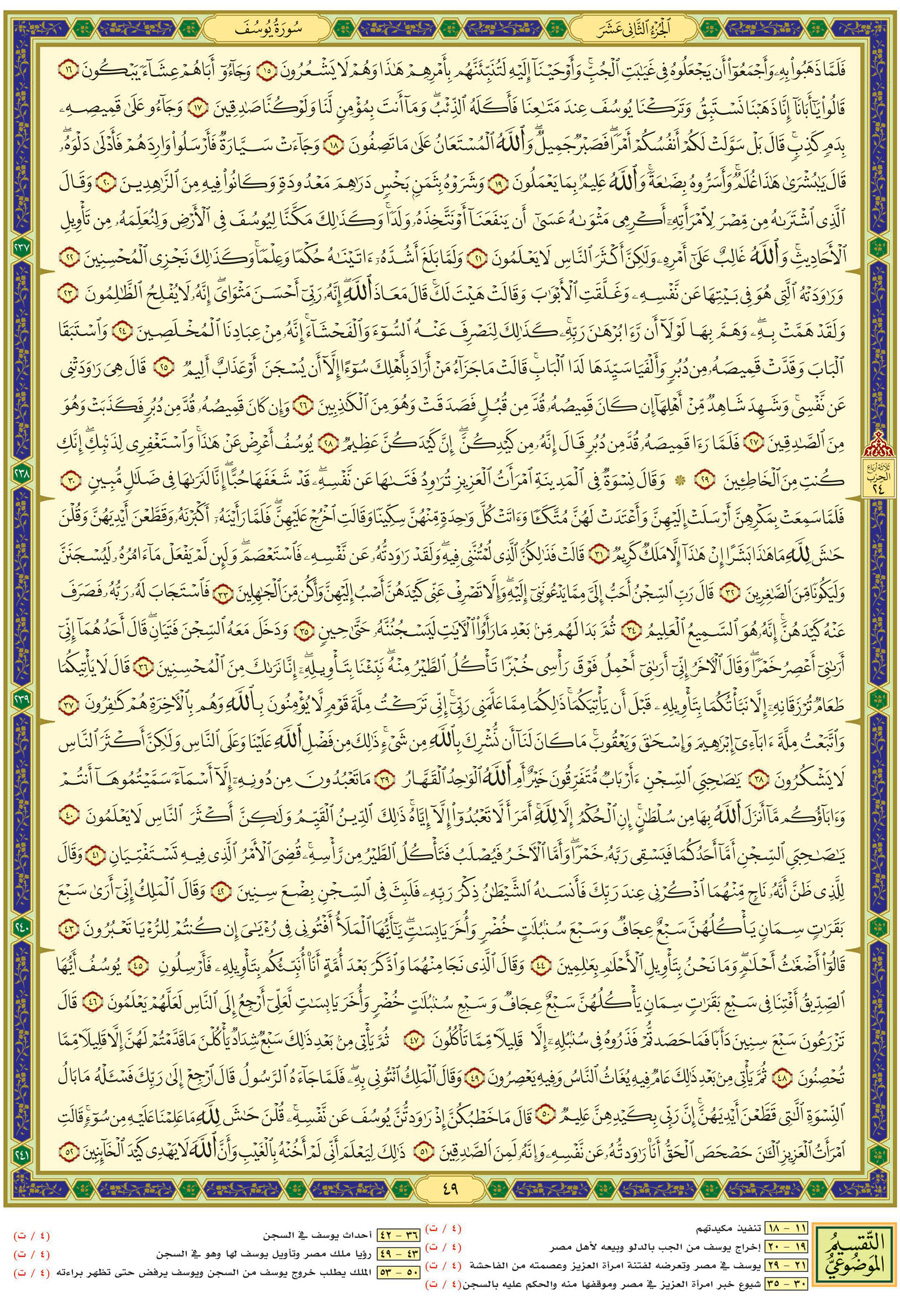 الجُزْءُ الثَّانِي عَشَر
سُورَةُ يُوسُفَ
فَلَمَّا ذَهَبُوا۟ بِهِۦ وَأَجْمَعُوٓا۟ أَن يَجْعَلُوهُ فِى غَيَٰبَتِ ٱلْجُبِّ ۚ وَأَوْحَيْنَآ إِلَيْهِ لَتُنَبِّئَنَّهُم بِأَمْرِهِمْ هَٰذَا وَهُمْ لَا يَشْعُرُونَ ١٥ وَجَآءُوٓ أَبَاهُمْ عِشَآءً يَبْكُونَ ١٦
قَالُوا۟ يَٰٓأَبَانَآ إِنَّا ذَهَبْنَا نَسْتَبِقُ وَتَرَكْنَا يُوسُفَ عِندَ مَتَٰعِنَا فَأَكَلَهُ ٱلذِّئْبُ ۖ وَمَآ أَنتَ بِمُؤْمِنٍ لَّنَا وَلَوْ كُنَّا صَٰدِقِينَ ١٧ وَجَآءُو عَلَىٰ قَمِيصِهِۦ
بِدَمٍ كَذِبٍ ۚ قَالَ بَلْ سَوَّلَتْ لَكُمْ أَنفُسُكُمْ أَمْرًا ۖ فَصَبْرٌ جَمِيلٌ ۖ وَٱللَّهُ ٱلْمُسْتَعَانُ عَلَىٰ مَا تَصِفُونَ ١٨ وَجَآءَتْ سَيَّارَةٌ فَأَرْسَلُوا۟ وَارِدَهُمْ فَأَدْلَىٰ دَلْوَهُۥ ۖ
قَالَ يَٰبُشْرَىٰ هَٰذَا غُلَٰمٌ ۚ وَأَسَرُّوهُ بِضَٰعَةً ۚ وَٱللَّهُ عَلِيمٌۢ بِمَا يَعْمَلُونَ ١٩ وَشَرَوْهُ بِثَمَنٍۭ بَخْسٍ دَرَٰهِمَ مَعْدُودَةٍ وَكَانُوا۟ فِيهِ مِنَ ٱلزَّٰهِدِينَ ٢٠ وَقَالَ
ٱلَّذِى ٱشْتَرَىٰهُ مِن مِّصْرَ لِٱمْرَأَتِهِۦٓ أَكْرِمِى مَثْوَىٰهُ عَسَىٰٓ أَن يَنفَعَنَآ أَوْ نَتَّخِذَهُۥ وَلَدًا ۚ وَكَذَٰلِكَ مَكَّنَّا لِيُوسُفَ فِى ٱلْأَرْضِ وَلِنُعَلِّمَهُۥ مِن تَأْوِيلِ
ٱلْأَحَادِيثِ ۚ وَٱللَّهُ غَالِبٌ عَلَىٰٓ أَمْرِهِۦ وَلَٰكِنَّ أَكْثَرَ ٱلنَّاسِ لَا يَعْلَمُونَ ٢١ وَلَمَّا بَلَغَ أَشُدَّهُۥٓ ءَاتَيْنَٰهُ حُكْمًا وَعِلْمًا ۚ وَكَذَٰلِكَ نَجْزِى ٱلْمُحْسِنِينَ ٢٢
٢٣٧
وَرَٰوَدَتْهُ ٱلَّتِى هُوَ فِى بَيْتِهَا عَن نَّفْسِهِۦ وَغَلَّقَتِ ٱلْأَبْوَٰبَ وَقَالَتْ هَيْتَ لَكَ ۚ قَالَ مَعَاذَ ٱللَّهِ ۖ إِنَّهُۥ رَبِّىٓ أَحْسَنَ مَثْوَاىَ ۖ إِنَّهُۥ لَا يُفْلِحُ ٱلظَّٰلِمُونَ ٢٣
وَلَقَدْ هَمَّتْ بِهِۦ ۖ وَهَمَّ بِهَا لَوْلَآ أَن رَّءَا بُرْهَٰنَ رَبِّهِۦ ۚ كَذَٰلِكَ لِنَصْرِفَ عَنْهُ ٱلسُّوٓءَ وَٱلْفَحْشَآءَ ۚ إِنَّهُۥ مِنْ عِبَادِنَا ٱلْمُخْلَصِينَ ٢٤ وَٱسْتَبَقَا
ٱلْبَابَ وَقَدَّتْ قَمِيصَهُۥ مِن دُبُرٍ وَأَلْفَيَا سَيِّدَهَا لَدَا ٱلْبَابِ ۚ قَالَتْ مَا جَزَآءُ مَنْ أَرَادَ بِأَهْلِكَ سُوٓءًا إِلَّآ أَن يُسْجَنَ أَوْ عَذَابٌ أَلِيمٌ ٢٥ قَالَ هِىَ رَٰوَدَتْنِى
عَن نَّفْسِى ۚ وَشَهِدَ شَاهِدٌ مِّنْ أَهْلِهَآ إِن كَانَ قَمِيصُهُۥ قُدَّ مِن قُبُلٍ فَصَدَقَتْ وَهُوَ مِنَ ٱلْكَٰذِبِينَ ٢٦ وَإِن كَانَ قَمِيصُهُۥ قُدَّ مِن دُبُرٍ فَكَذَبَتْ وَهُوَ
مِنَ ٱلصَّٰدِقِينَ ٢٧ فَلَمَّا رَءَا قَمِيصَهُۥ قُدَّ مِن دُبُرٍ قَالَ إِنَّهُۥ مِن كَيْدِكُنَّ ۖ إِنَّ كَيْدَكُنَّ عَظِيمٌ ٢٨ يُوسُفُ أَعْرِضْ عَنْ هَٰذَا ۚ وَٱسْتَغْفِرِى لِذَنۢبِكِ ۖ إِنَّكِ
كُنتِ مِنَ ٱلْخَاطِـِٔينَ ٢٩ ۞ وَقَالَ نِسْوَةٌ فِى ٱلْمَدِينَةِ ٱمْرَأَتُ ٱلْعَزِيزِ تُرَٰوِدُ فَتَىٰهَا عَن نَّفْسِهِۦ ۖ قَدْ شَغَفَهَا حُبًّا ۖ إِنَّا لَنَرَىٰهَا فِى ضَلَٰلٍ مُّبِينٍ ٣٠
ثلاثة أرباع
الحزب
٢٤
٢٣٨
فَلَمَّا سَمِعَتْ بِمَكْرِهِنَّ أَرْسَلَتْ إِلَيْهِنَّ وَأَعْتَدَتْ لَهُنَّ مُتَّكَـًٔا وَءَاتَتْ كُلَّ وَٰحِدَةٍ مِّنْهُنَّ سِكِّينًا وَقَالَتِ ٱخْرُجْ عَلَيْهِنَّ ۖ فَلَمَّا رَأَيْنَهُۥٓ أَكْبَرْنَهُۥ وَقَطَّعْنَ أَيْدِيَهُنَّ وَقُلْنَ
حَٰشَ لِلَّهِ مَا هَٰذَا بَشَرًا إِنْ هَٰذَآ إِلَّا مَلَكٌ كَرِيمٌ ٣١ قَالَتْ فَذَٰلِكُنَّ ٱلَّذِى لُمْتُنَّنِى فِيهِ ۖ وَلَقَدْ رَٰوَدتُّهُۥ عَن نَّفْسِهِۦ فَٱسْتَعْصَمَ ۖ وَلَئِن لَّمْ يَفْعَلْ مَآ ءَامُرُهُۥ لَيُسْجَنَنَّ
وَلَيَكُونًا مِّنَ ٱلصَّٰغِرِينَ ٣٢ قَالَ رَبِّ ٱلسِّجْنُ أَحَبُّ إِلَىَّ مِمَّا يَدْعُونَنِىٓ إِلَيْهِ ۖ وَإِلَّا تَصْرِفْ عَنِّى كَيْدَهُنَّ أَصْبُ إِلَيْهِنَّ وَأَكُن مِّنَ ٱلْجَٰهِلِينَ ٣٣ فَٱسْتَجَابَ لَهُۥ رَبُّهُۥ فَصَرَفَ
عَنْهُ كَيْدَهُنَّ ۚ إِنَّهُۥ هُوَ ٱلسَّمِيعُ ٱلْعَلِيمُ ٣٤ ثُمَّ بَدَا لَهُم مِّنۢ بَعْدِ مَا رَأَوُا۟ ٱلْـَٔايَٰتِ لَيَسْجُنُنَّهُۥ حَتَّىٰ حِينٍ ٣٥ وَدَخَلَ مَعَهُ ٱلسِّجْنَ فَتَيَانِ ۖ قَالَ أَحَدُهُمَآ إِنِّىٓ
أَرَىٰنِىٓ أَعْصِرُ خَمْرًا ۖ وَقَالَ ٱلْـَٔاخَرُ إِنِّىٓ أَرَىٰنِىٓ أَحْمِلُ فَوْقَ رَأْسِى خُبْزًا تَأْكُلُ ٱلطَّيْرُ مِنْهُ ۖ نَبِّئْنَا بِتَأْوِيلِهِۦٓ ۖ إِنَّا نَرَىٰكَ مِنَ ٱلْمُحْسِنِينَ ٣٦ قَالَ لَا يَأْتِيكُمَا
طَعَامٌ تُرْزَقَانِهِۦٓ إِلَّا نَبَّأْتُكُمَا بِتَأْوِيلِهِۦ قَبْلَ أَن يَأْتِيَكُمَا ۚ ذَٰلِكُمَا مِمَّا عَلَّمَنِى رَبِّىٓ ۚ إِنِّى تَرَكْتُ مِلَّةَ قَوْمٍ لَّا يُؤْمِنُونَ بِٱللَّهِ وَهُم بِٱلْـَٔاخِرَةِ هُمْ كَٰفِرُونَ ٣٧
٢٣٩
وَٱتَّبَعْتُ مِلَّةَ ءَابَآءِىٓ إِبْرَٰهِيمَ وَإِسْحَٰقَ وَيَعْقُوبَ ۚ مَا كَانَ لَنَآ أَن نُّشْرِكَ بِٱللَّهِ مِن شَىْءٍ ۚ ذَٰلِكَ مِن فَضْلِ ٱللَّهِ عَلَيْنَا وَعَلَى ٱلنَّاسِ وَلَٰكِنَّ أَكْثَرَ ٱلنَّاسِ
لَا يَشْكُرُونَ ٣٨ يَٰصَٰحِبَىِ ٱلسِّجْنِ ءَأَرْبَابٌ مُّتَفَرِّقُونَ خَيْرٌ أَمِ ٱللَّهُ ٱلْوَٰحِدُ ٱلْقَهَّارُ ٣٩ مَا تَعْبُدُونَ مِن دُونِهِۦٓ إِلَّآ أَسْمَآءً سَمَّيْتُمُوهَآ أَنتُمْ
وَءَابَآؤُكُم مَّآ أَنزَلَ ٱللَّهُ بِهَا مِن سُلْطَٰنٍ ۚ إِنِ ٱلْحُكْمُ إِلَّا لِلَّهِ ۚ أَمَرَ أَلَّا تَعْبُدُوٓا۟ إِلَّآ إِيَّاهُ ۚ ذَٰلِكَ ٱلدِّينُ ٱلْقَيِّمُ وَلَٰكِنَّ أَكْثَرَ ٱلنَّاسِ لَا يَعْلَمُونَ ٤٠
يَٰصَٰحِبَىِ ٱلسِّجْنِ أَمَّآ أَحَدُكُمَا فَيَسْقِى رَبَّهُۥ خَمْرًا ۖ وَأَمَّا ٱلْـَٔاخَرُ فَيُصْلَبُ فَتَأْكُلُ ٱلطَّيْرُ مِن رَّأْسِهِۦ ۚ قُضِىَ ٱلْأَمْرُ ٱلَّذِى فِيهِ تَسْتَفْتِيَانِ ٤١ وَقَالَ
لِلَّذِى ظَنَّ أَنَّهُۥ نَاجٍ مِّنْهُمَا ٱذْكُرْنِى عِندَ رَبِّكَ فَأَنسَىٰهُ ٱلشَّيْطَٰنُ ذِكْرَ رَبِّهِۦ فَلَبِثَ فِى ٱلسِّجْنِ بِضْعَ سِنِينَ ٤٢ وَقَالَ ٱلْمَلِكُ إِنِّىٓ أَرَىٰ سَبْعَ
بَقَرَٰتٍ سِمَانٍ يَأْكُلُهُنَّ سَبْعٌ عِجَافٌ وَسَبْعَ سُنۢبُلَٰتٍ خُضْرٍ وَأُخَرَ يَابِسَٰتٍ ۖ يَٰٓأَيُّهَا ٱلْمَلَأُ أَفْتُونِى فِى رُءْيَٰىَ إِن كُنتُمْ لِلرُّءْيَا تَعْبُرُونَ ٤٣
٢٤٠
قَالُوٓا۟ أَضْغَٰثُ أَحْلَٰمٍ ۖ وَمَا نَحْنُ بِتَأْوِيلِ ٱلْأَحْلَٰمِ بِعَٰلِمِينَ ٤٤ وَقَالَ ٱلَّذِى نَجَا مِنْهُمَا وَٱدَّكَرَ بَعْدَ أُمَّةٍ أَنَا۠ أُنَبِّئُكُم بِتَأْوِيلِهِۦ فَأَرْسِلُونِ ٤٥ يُوسُفُ أَيُّهَا
ٱلصِّدِّيقُ أَفْتِنَا فِى سَبْعِ بَقَرَٰتٍ سِمَانٍ يَأْكُلُهُنَّ سَبْعٌ عِجَافٌ وَسَبْعِ سُنۢبُلَٰتٍ خُضْرٍ وَأُخَرَ يَابِسَٰتٍ لَّعَلِّىٓ أَرْجِعُ إِلَى ٱلنَّاسِ لَعَلَّهُمْ يَعْلَمُونَ ٤٦ قَالَ
تَزْرَعُونَ سَبْعَ سِنِينَ دَأَبًا فَمَا حَصَدتُّمْ فَذَرُوهُ فِى سُنۢبُلِهِۦٓ إِلَّا قَلِيلًا مِّمَّا تَأْكُلُونَ ٤٧ ثُمَّ يَأْتِى مِنۢ بَعْدِ ذَٰلِكَ سَبْعٌ شِدَادٌ يَأْكُلْنَ مَا قَدَّمْتُمْ لَهُنَّ إِلَّا قَلِيلًا مِّمَّا
تُحْصِنُونَ ٤٨ ثُمَّ يَأْتِى مِنۢ بَعْدِ ذَٰلِكَ عَامٌ فِيهِ يُغَاثُ ٱلنَّاسُ وَفِيهِ يَعْصِرُونَ ٤٩ وَقَالَ ٱلْمَلِكُ ٱئْتُونِى بِهِۦ ۖ فَلَمَّا جَآءَهُ ٱلرَّسُولُ قَالَ ٱرْجِعْ إِلَىٰ رَبِّكَ فَسْـَٔلْهُ مَا بَالُ
ٱلنِّسْوَةِ ٱلَّٰتِى قَطَّعْنَ أَيْدِيَهُنَّ ۚ إِنَّ رَبِّى بِكَيْدِهِنَّ عَلِيمٌ ٥٠ قَالَ مَا خَطْبُكُنَّ إِذْ رَٰوَدتُّنَّ يُوسُفَ عَن نَّفْسِهِۦ ۚ قُلْنَ حَٰشَ لِلَّهِ مَا عَلِمْنَا عَلَيْهِ مِن سُوٓءٍ ۚ قَالَتِ
ٱمْرَأَتُ ٱلْعَزِيزِ ٱلْـَٰٔنَ حَصْحَصَ ٱلْحَقُّ أَنَا۠ رَٰوَدتُّهُۥ عَن نَّفْسِهِۦ وَإِنَّهُۥ لَمِنَ ٱلصَّٰدِقِينَ ٥١ ذَٰلِكَ لِيَعْلَمَ أَنِّى لَمْ أَخُنْهُ بِٱلْغَيْبِ وَأَنَّ ٱللَّهَ لَا يَهْدِى كَيْدَ ٱلْخَآئِنِينَ ٥٢
٢٤١
٤٩
التَّقْسِيمُ
المَوْضُوعِيُّ
١١ - ١٨ تنفيذ مكيدتهم (٤ / ت)
١٩ - ٢٠ إخراج يوسف من الجب بالدلو وبيعه لأهل مصر (٤ / ت)
٢١ - ٢٩ يوسف في مصر وتعرضه لفتنة امرأة العزيز وعصمته من الفاحشة (٤ / ت)
٣٠ - ٣٥ شيوع خبر امرأة العزيز في مصر وموقفها منه والحكم عليه بالسجن (٤ / ت)
٣٦ - ٤٢ أحداث يوسف في السجن (٤ / ت)
٤٣ - ٤٩ رؤيا ملك مصر وتأويل يوسف لها وهو في السجن (٤ / ت)
٥٠ - ٥٣ الملك يطلب خروج يوسف من السجن ويوسف يرفض حتى تظهر براءته (٤ / ت)